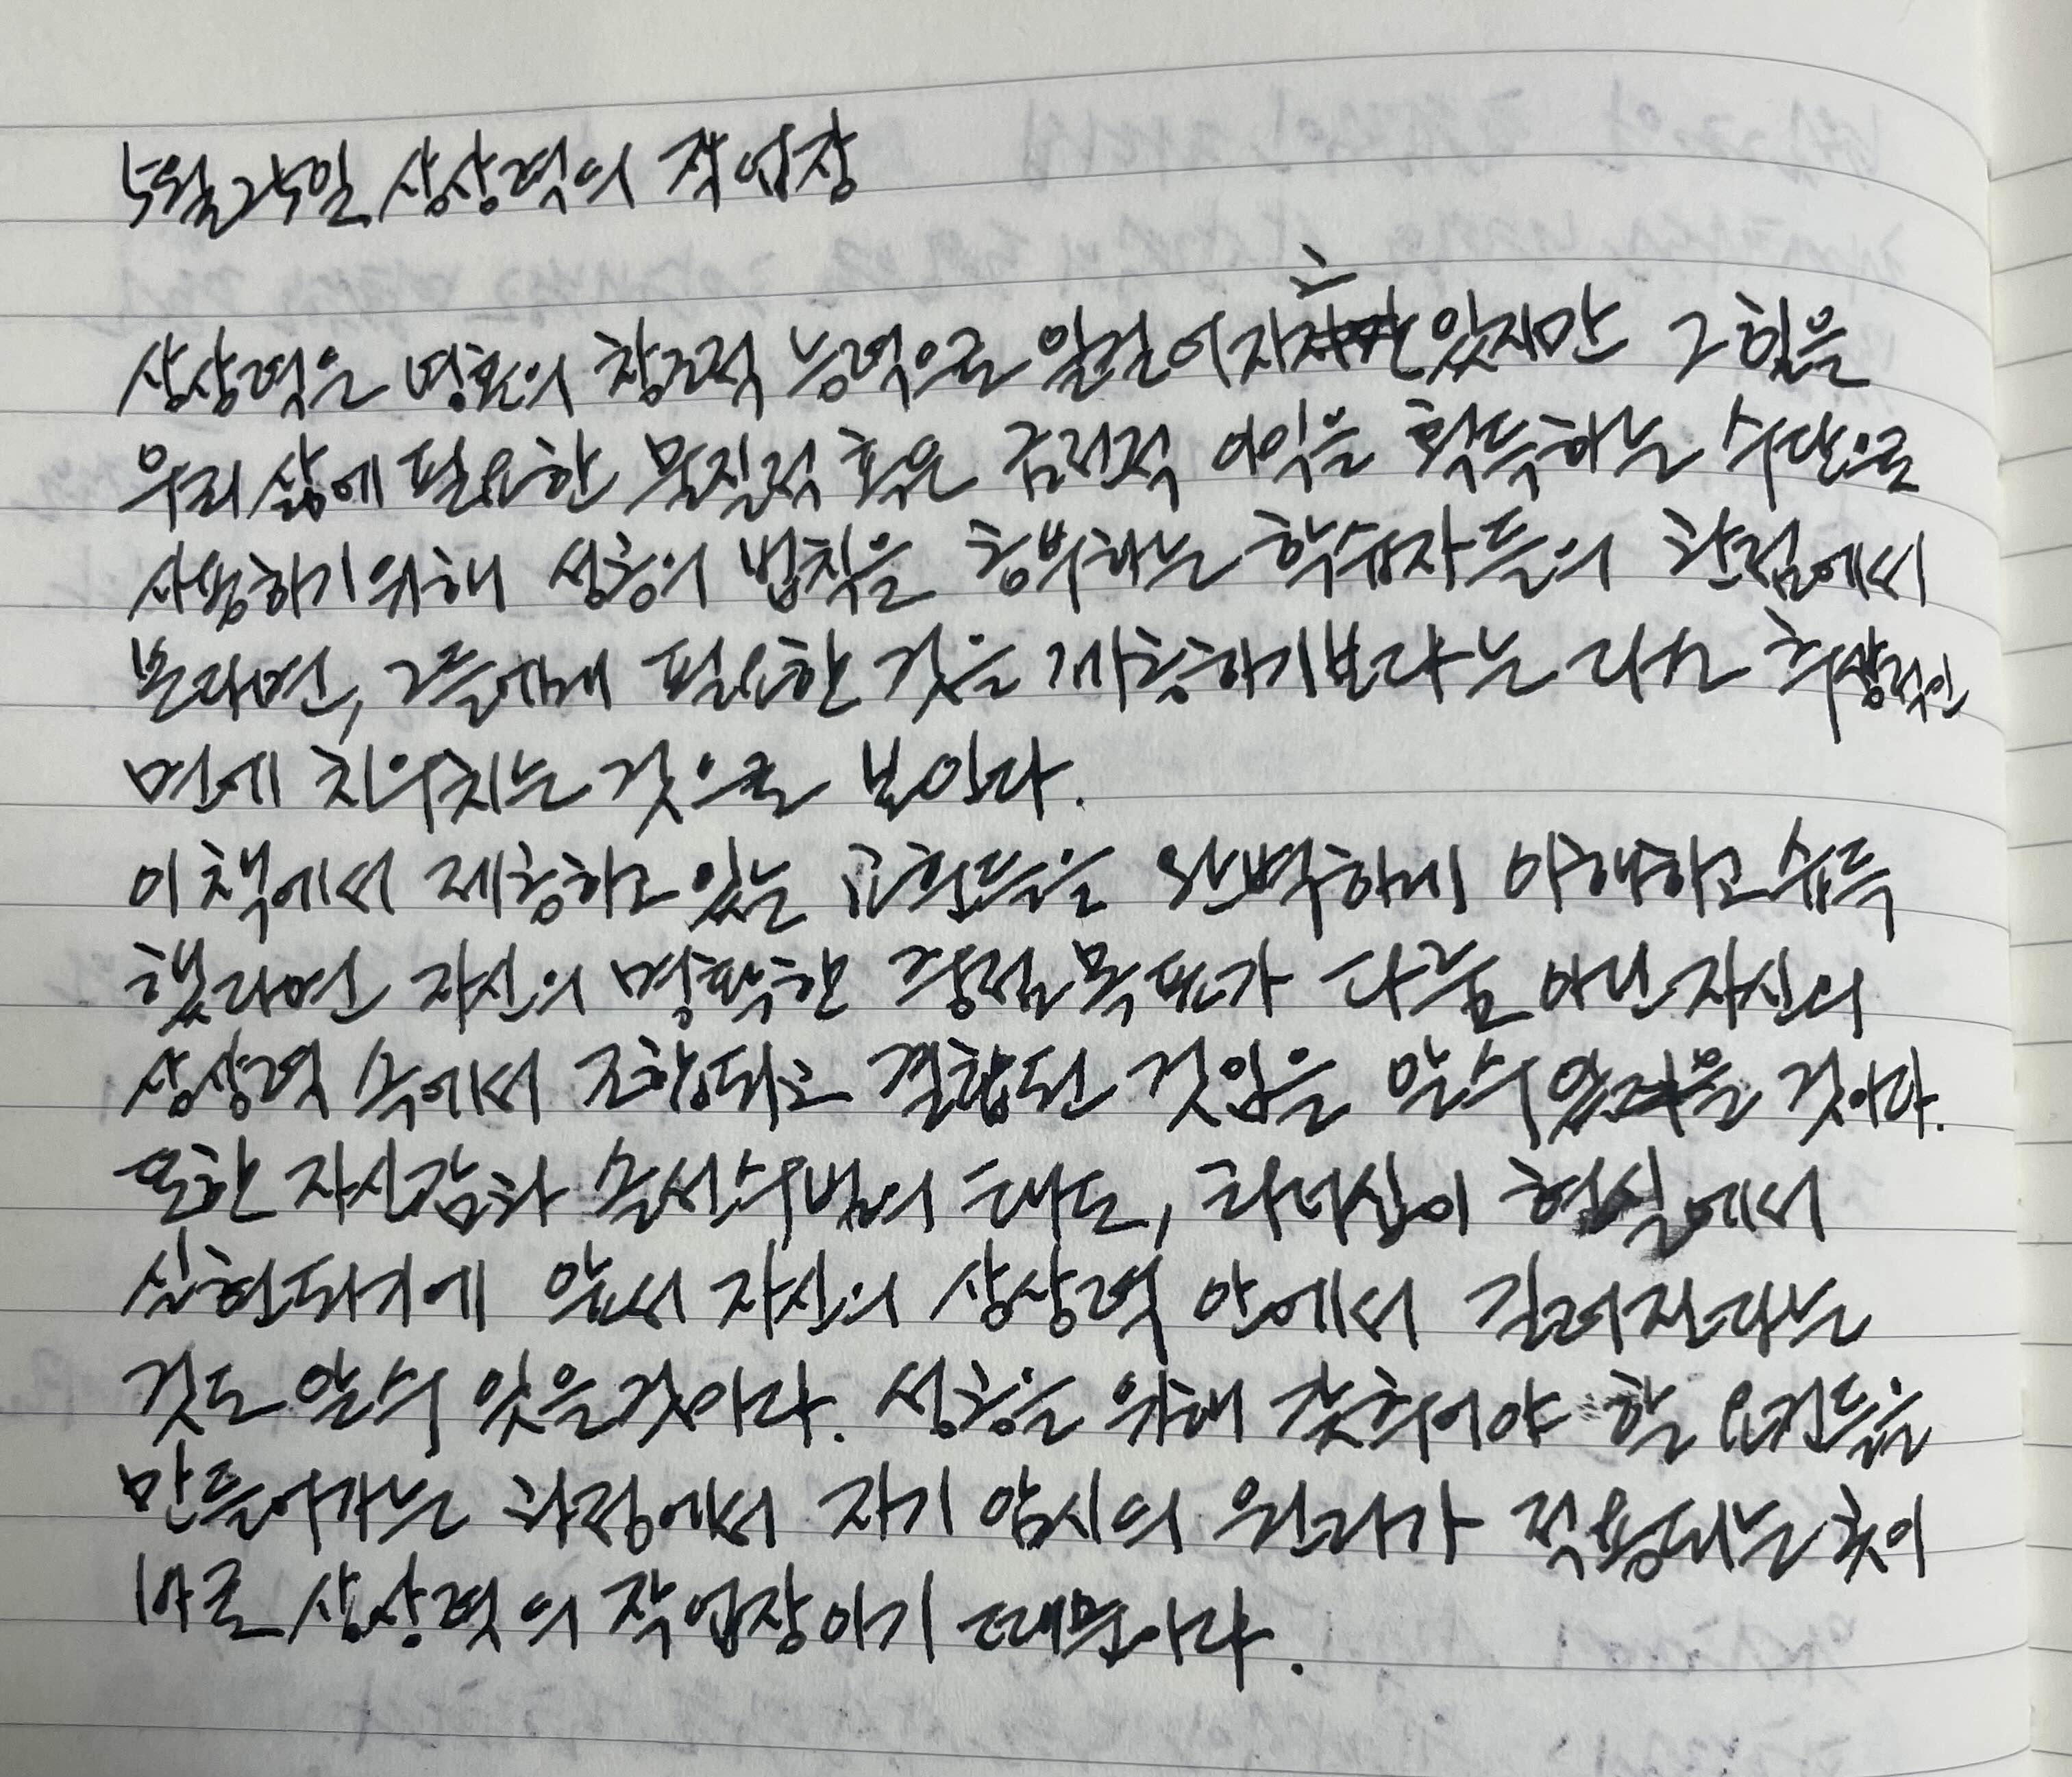 5월25일 상상력의 작업장
상상력은 영혼의 창조적 능력으로 일컬어지고 있지만 그 힘을
우리 삶에 필요한 물질적 혹은 금전적 이익을 획득하는 수단으로
사용하기위해 성공의 법칙을 공부하는 학습자들의 관점에서
본다면, 그들에게 필요한 것을 제공하기보다는 다소 추상적인
면에 치우치는 것으로 보인다.
이 책에서 제공하고 있는 교훈들을 완벽하게 이해하고 습득
했다면 자신의 명확한 중점 목표가 다름 아닌 자신의
상상력 속에서 조합되고 결합된 것임을 알수있을 것이다.
또한 자신감과 솔선수범의 태도, 리더십이 현실에서
실현되기에 앞서 자신의 상상력 안에서 길러진다는
것도 알수 있을것이다. 성공을 위해 갖추어야 할 요건들을
만들어가는 과정에서 자기 암시의 원리가 적용되는곳이
바로 상상력의 작업장이기 때문이다.